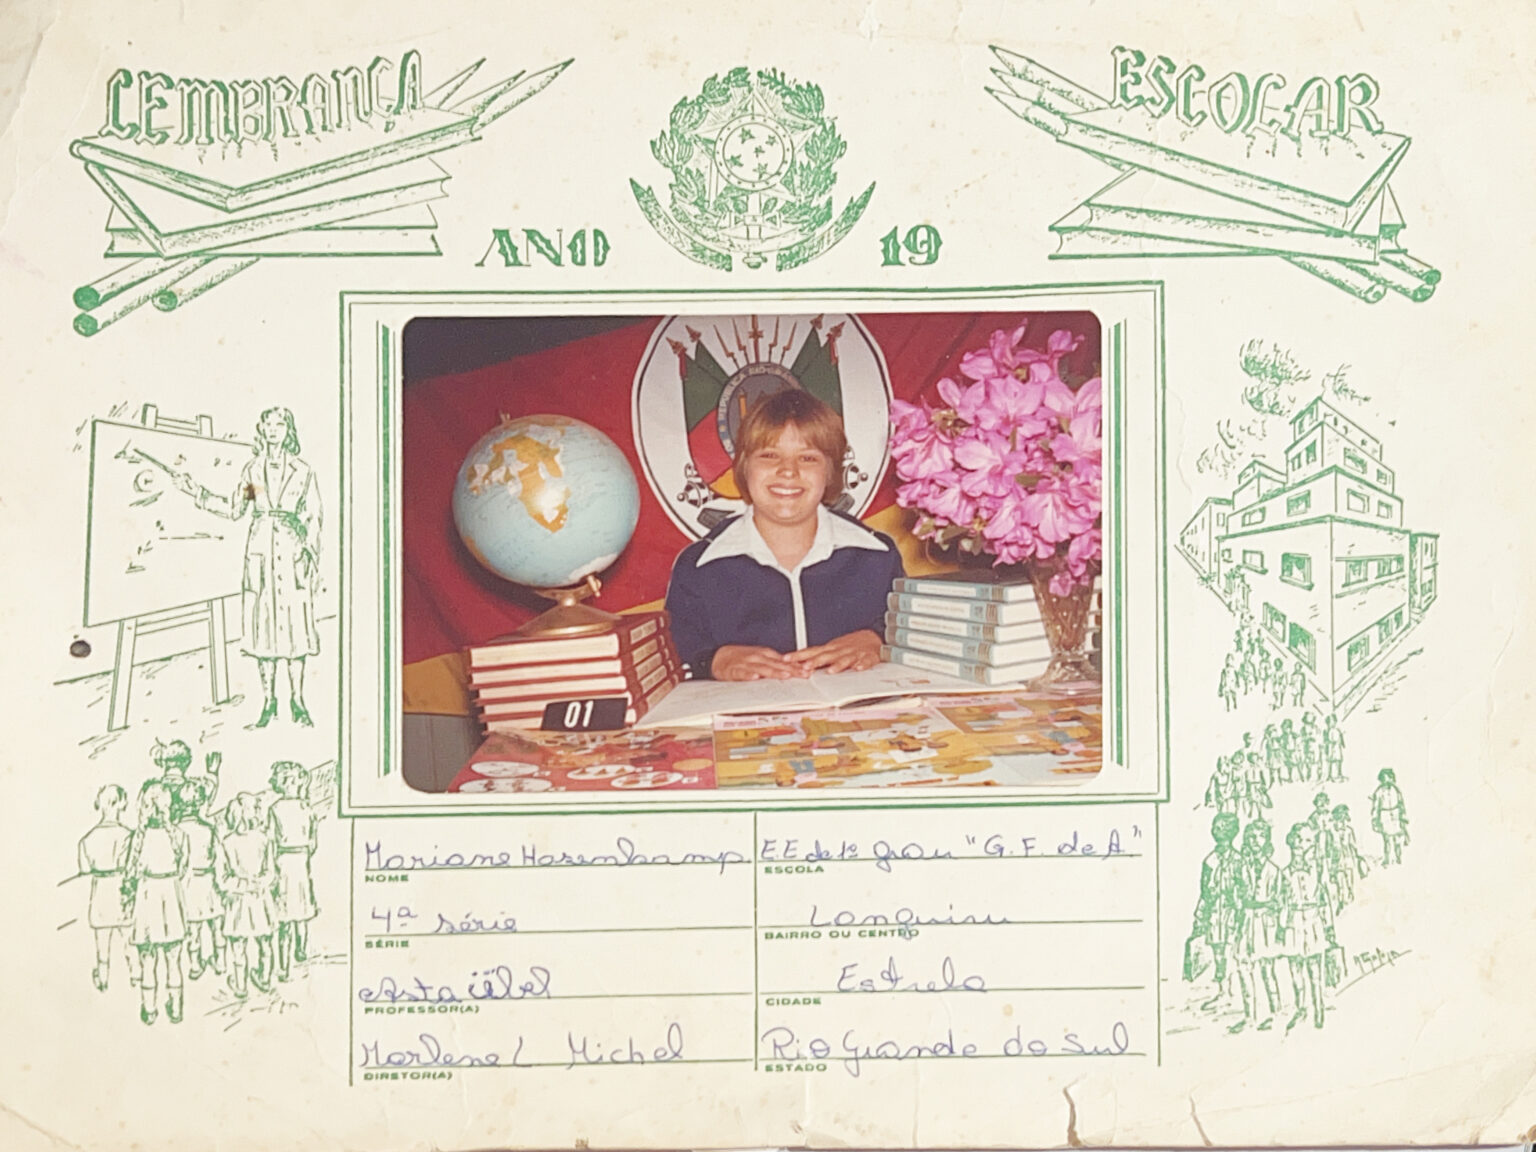 LEMBRANÇA
ESCOLAR
ANO 19
REPÚBLICA RIO-GRAN
01
Mariane Hasenkamp
NOME
E.E de 1º grau "G. F. de A."
ESCOLA
4ª série
SÉRIE
BAIRRO OU CENTRO
Asta
PROFESSOR(A)
Estrela
CIDADE
Marlene L Michel
DIRETOR(A)
Rio Grande do Sul
ESTADO